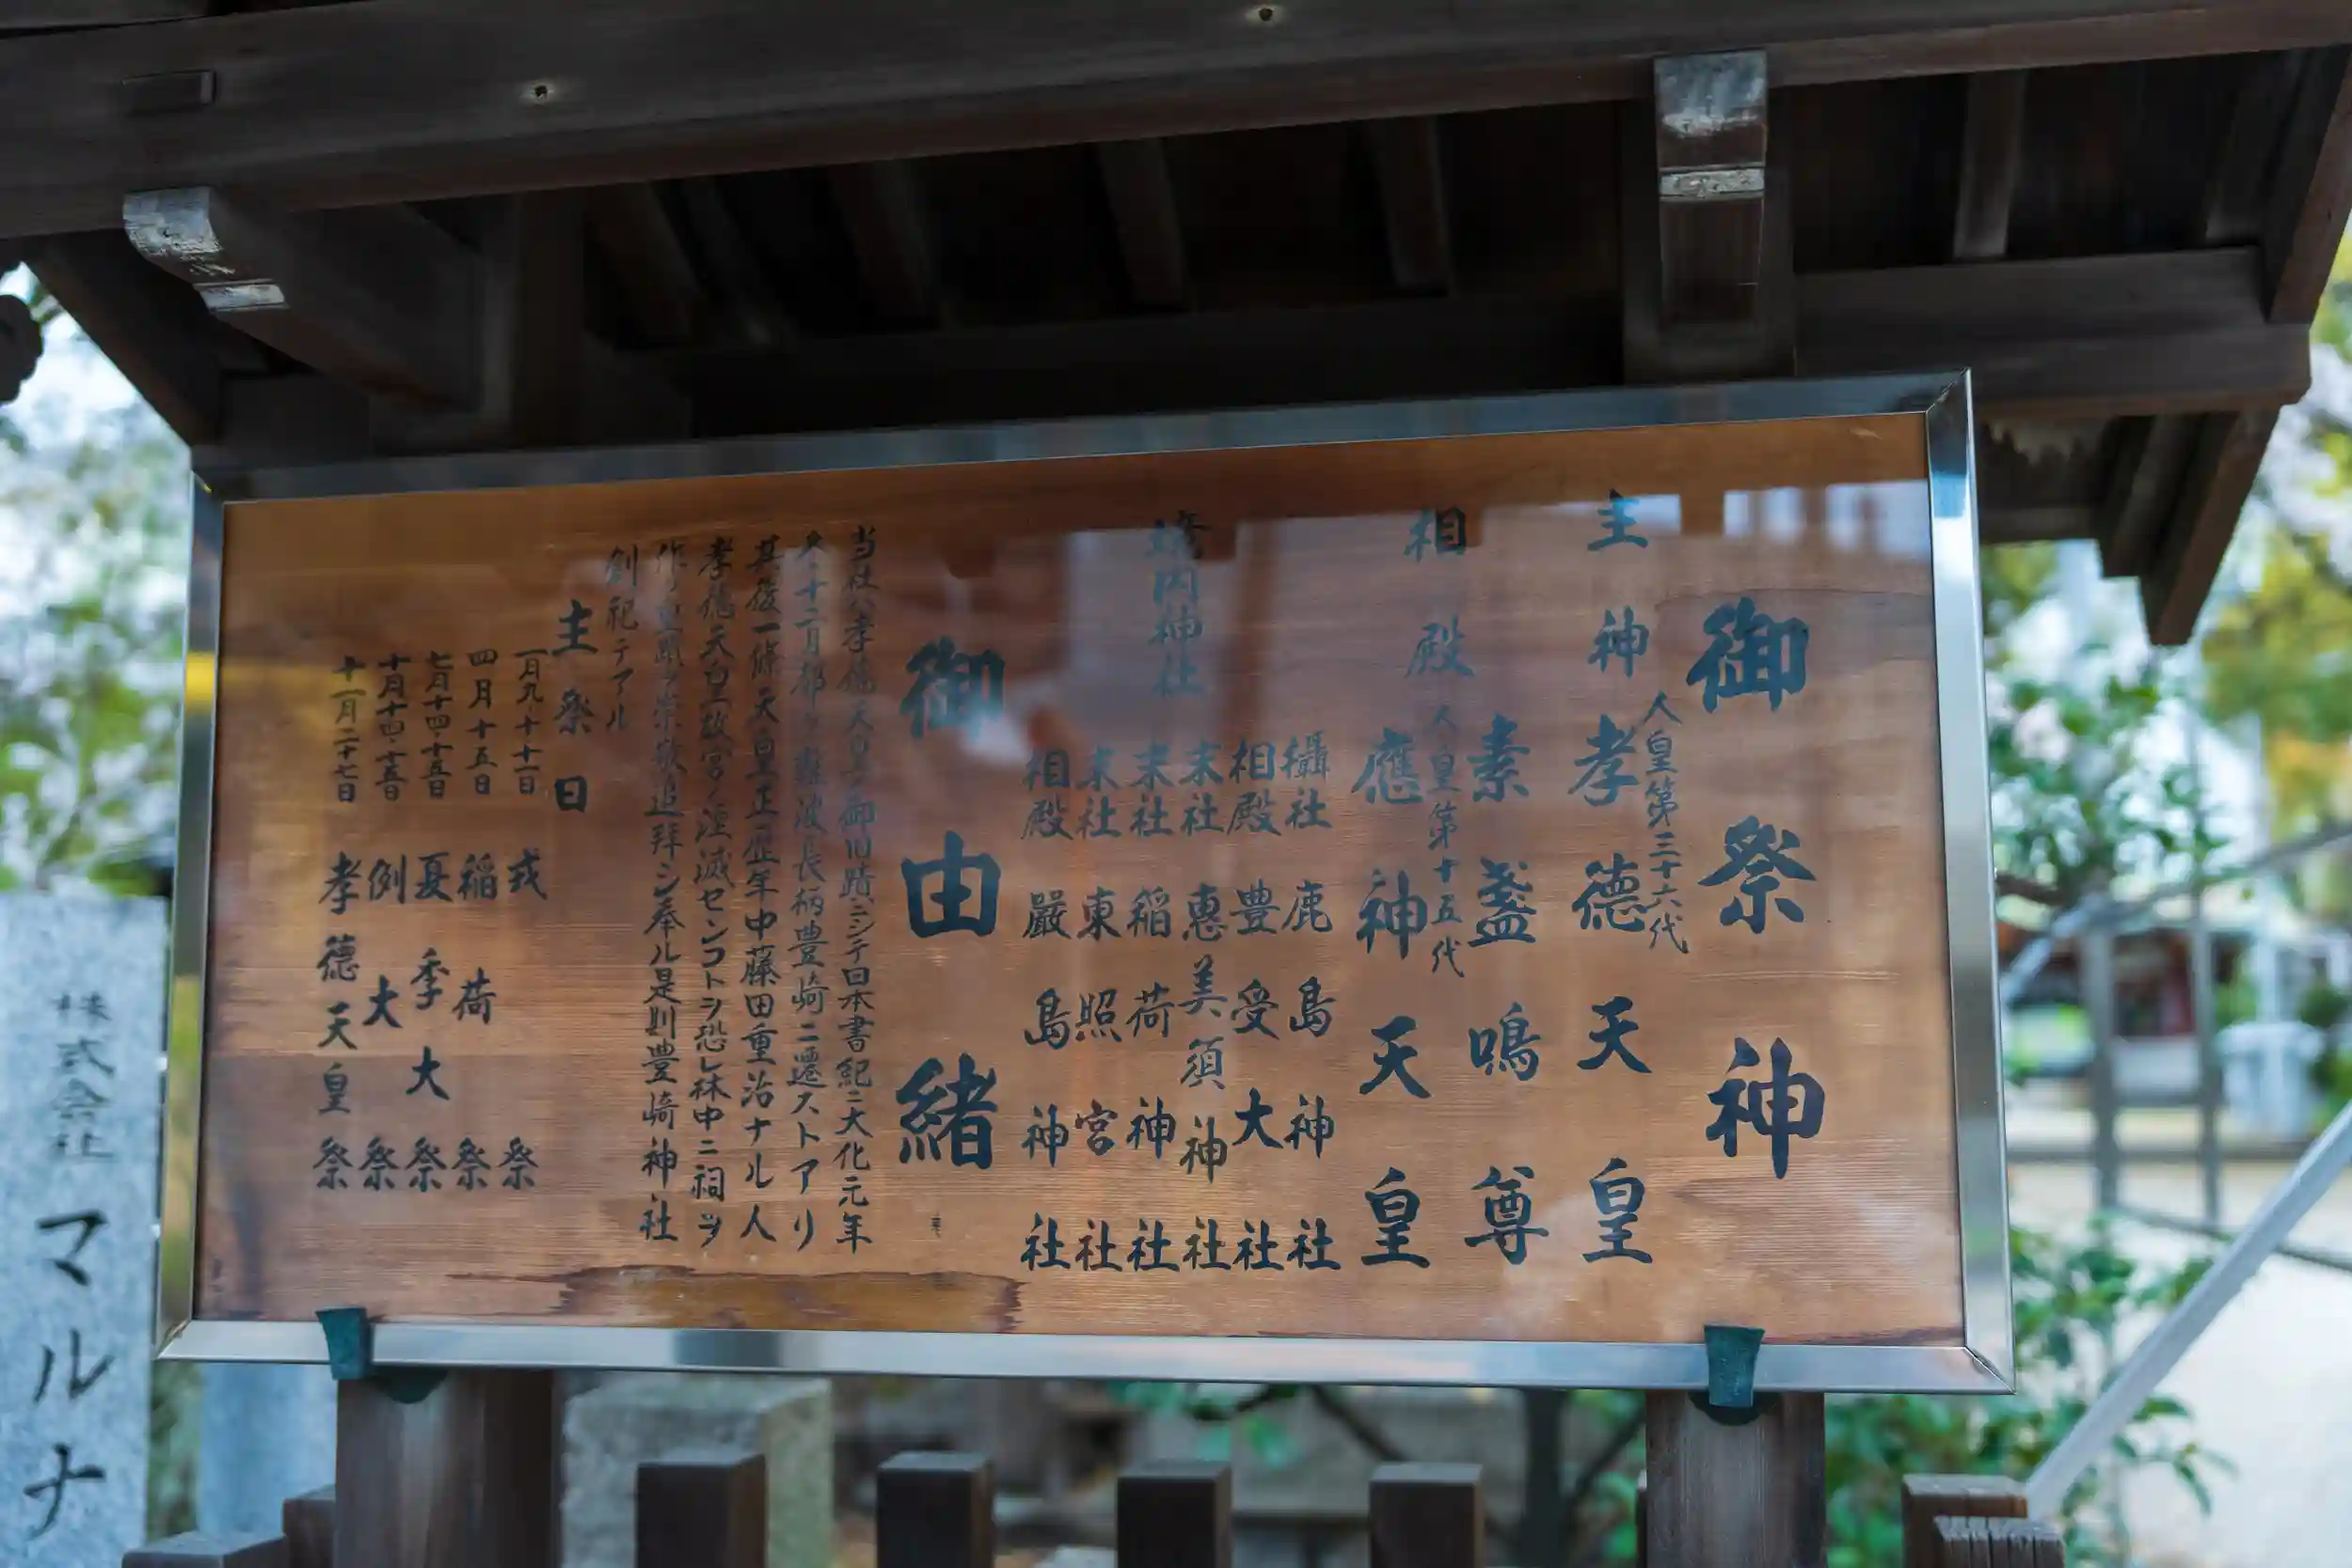 御祭神
主神 孝德天皇
人皇第三十六代
素盞鳴尊
相殿 應神天皇
人皇第十五代
境内神社
攝社 鹿島神社
相殿 豊受大社
末社 恵美須神社
末社 稲荷神社
末社 東照宮社
相殿 嚴島神社
御由緒
当社ハ孝德天皇ノ御旧蹟ニシテ日本書紀ニ大化元年
冬十二月都ヲ難波長柄豊崎ニ遷ストアリ
其後一條天皇正歴年中藤田重治ナル人
孝德天皇故宮ノ湮滅センコトヲ恐レ林中ニ祠ヲ
作リ皇霊ヲ崇敬追拜シ奉ル是則豊崎神社
創祀テアル
主祭日
一月九十十一日 戎祭
四月十五日 稲荷祭
七月十四・十五日 夏季大祭
十月十四・十五日 例大祭
十一月二十七日 孝德天皇祭
株式会社マルナ